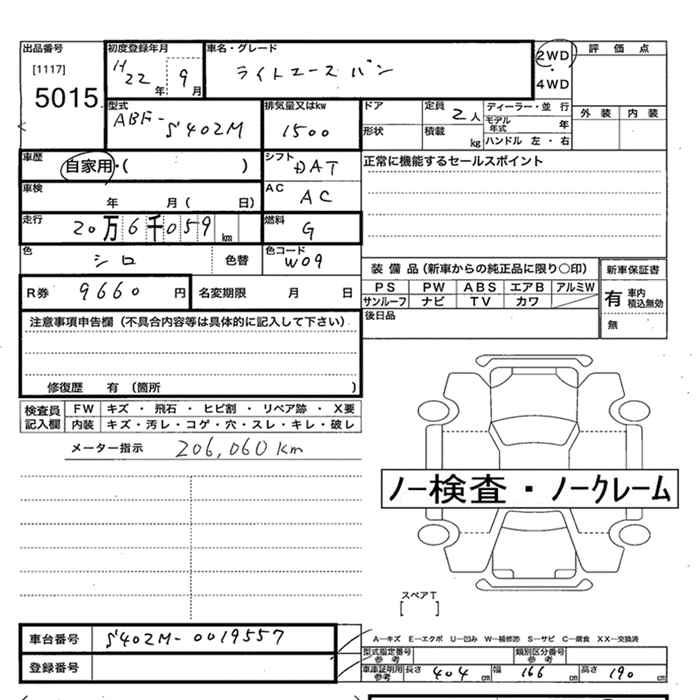 出品番号 初度登録年月 車名・グレード 2WD 評価点
[1117] H22年 9月 ライトエース バン ・
5015 4WD
型式 排気量又はkw ドア 定員 2人 ディーラー・並行 外装 内装
ABF-S402M 1500 モデル年式 年
形状 積載 kg ハンドル 左・右
車歴 自家用・( ) シフト DAT 正常に機能するセールスポイント
車検 年 月 ( 日) AC AC
走行 20万6千059km 燃料 G
色 シロ 色替 色コード W09
装備品(新車からの純正品に限り○印) 新車保証書
R券 9660円 名変期限 月 日 PS PW ABS エアB アルミW 有 車内積込無効
サンルーフ ナビ TV カワ
注意事項申告欄(不具合内容等は具体的に記入して下さい) 後日品 無
修復歴 有 (箇所 )
検査員 FW キズ・飛石・ヒビ割・リペア跡・X要
記入欄 内装 キズ・汚レ・コゲ・穴・スレ・キレ・破レ
メーター指示 206,060km
ノー検査・ノークレーム
スペアT
[ ]
車台番号 S402M-0019557
A―キズ E―エクボ U―凹み W―補修跡 S―サビ C―腐食 XX―交換済
登録番号 型式指定番号 参考 類別区分番号 参考
車庫証明用 参考 長さ 404cm 幅 166cm 高さ 190cm